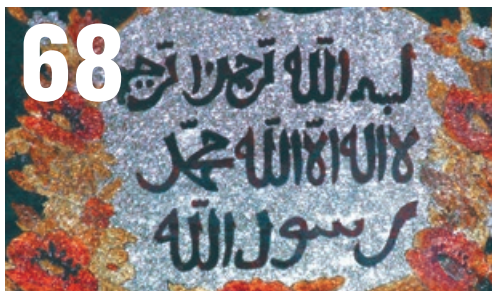 68
بسم الله الرحمن الرحيم
لا اله الا الله محمد
رسول الله